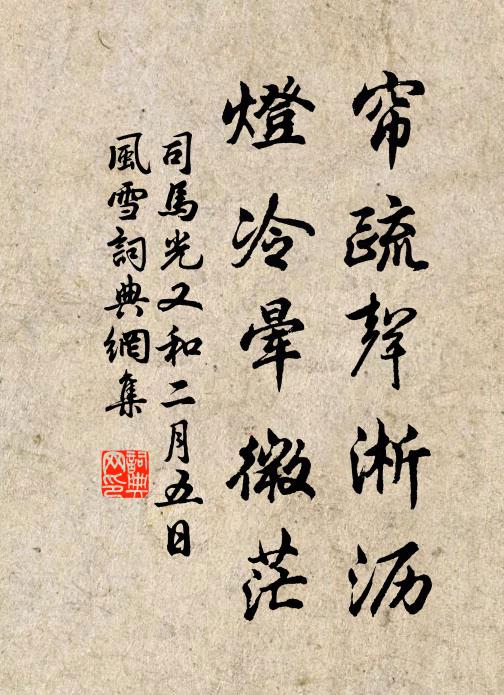 帘疏聲淅沥
燈冷暈微茫
司馬光又和二月五日
風雪詞典網集
詞典网印